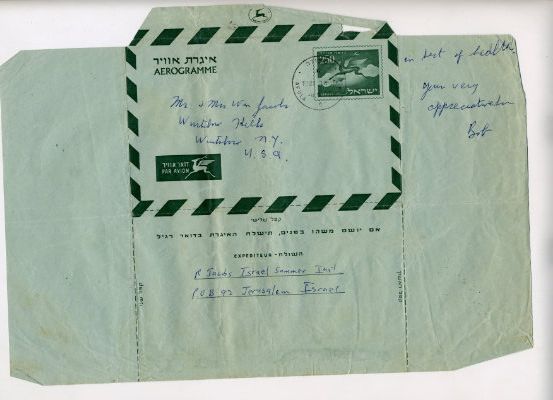 איגרת אוויר
AEROGRAMME
250
ישראל
Mr. & Mrs Wm Jacobs
Hills
N.Y.
U.S.A.
דואר אוויר
PAR AVION
in best of health.
your very
appreciative
Bob
קפל שלישי
אם יושם משהו בפנים, תישלח האיגרת בדואר רגיל
השולח - EXPEDITEUR
R Jacobs Israel Summer Inst
P.O.B 92 Jerusalem Israel
קפל שני